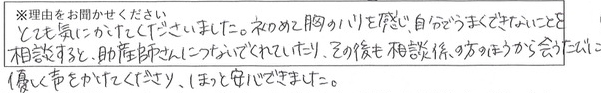 ※理由をお聞かせください
とても気にかけてくださいました。ネりめて胸のハリを感じ、自分でうまくできないことを
相談すると、助産師さんにつないでくれていたり、その後も相談係の方のほうから会うたびに
優しく声をかけてくださり、ほっと安心できました。